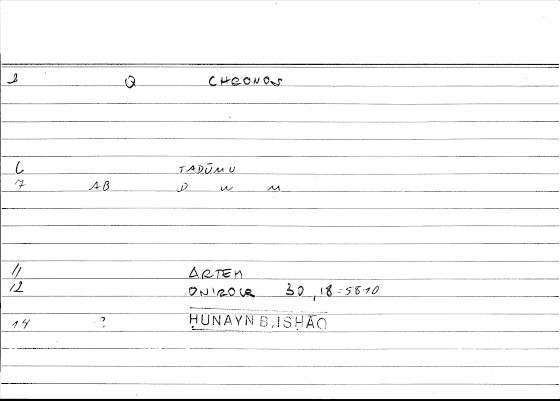 2 Q CHRONOS
6 TADŪMU
7 AB D W M
11 ARTEM
12 ONIROCR 30,18=5810
14 ? ḤUNAYN B. ISḤĀQ